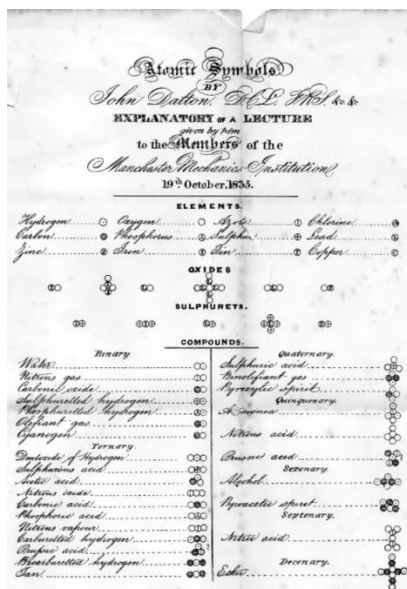 Atomic Symbols
BY
John Dalton, D.C.L. F.R.S. &c. &c.
EXPLANATORY OF A LECTURE
given by him
to the Members of the
Manchester Mechanics Institution
19th October, 1835.
ELEMENTS.
Hydrogen Oxygen Azote Chlorine
Carbon Phosphorus Sulphur Lead
Zinc Iron Tin Copper
OXIDES
SULPHURETS
COMPOUNDS.
Binary
Water
Nitrous gas
Carbonic oxide
Sulphuretted hydrogen
Phosphuretted hydrogen
Olefiant gas
Cyanogen
Ternary
Deutoxide of Hydrogen
Sulphurous acid
Acetic acid
Nitrous oxide
Carbonic acid
Phosphoric acid
Nitrous vapour
Carburetted hydrogen
Prussic acid ?
Bicarburetted hydrogen
Tan
Quaternary
Sulphuric acid
Binolefiant gas
Pyroxylic spirit
Quinquenary
Ammonia
Nitrous acid
Prussic acid
Sexenary
Alcohol
Pyroacetic spirit
Septenary
Nitric acid
Decenary
Ether